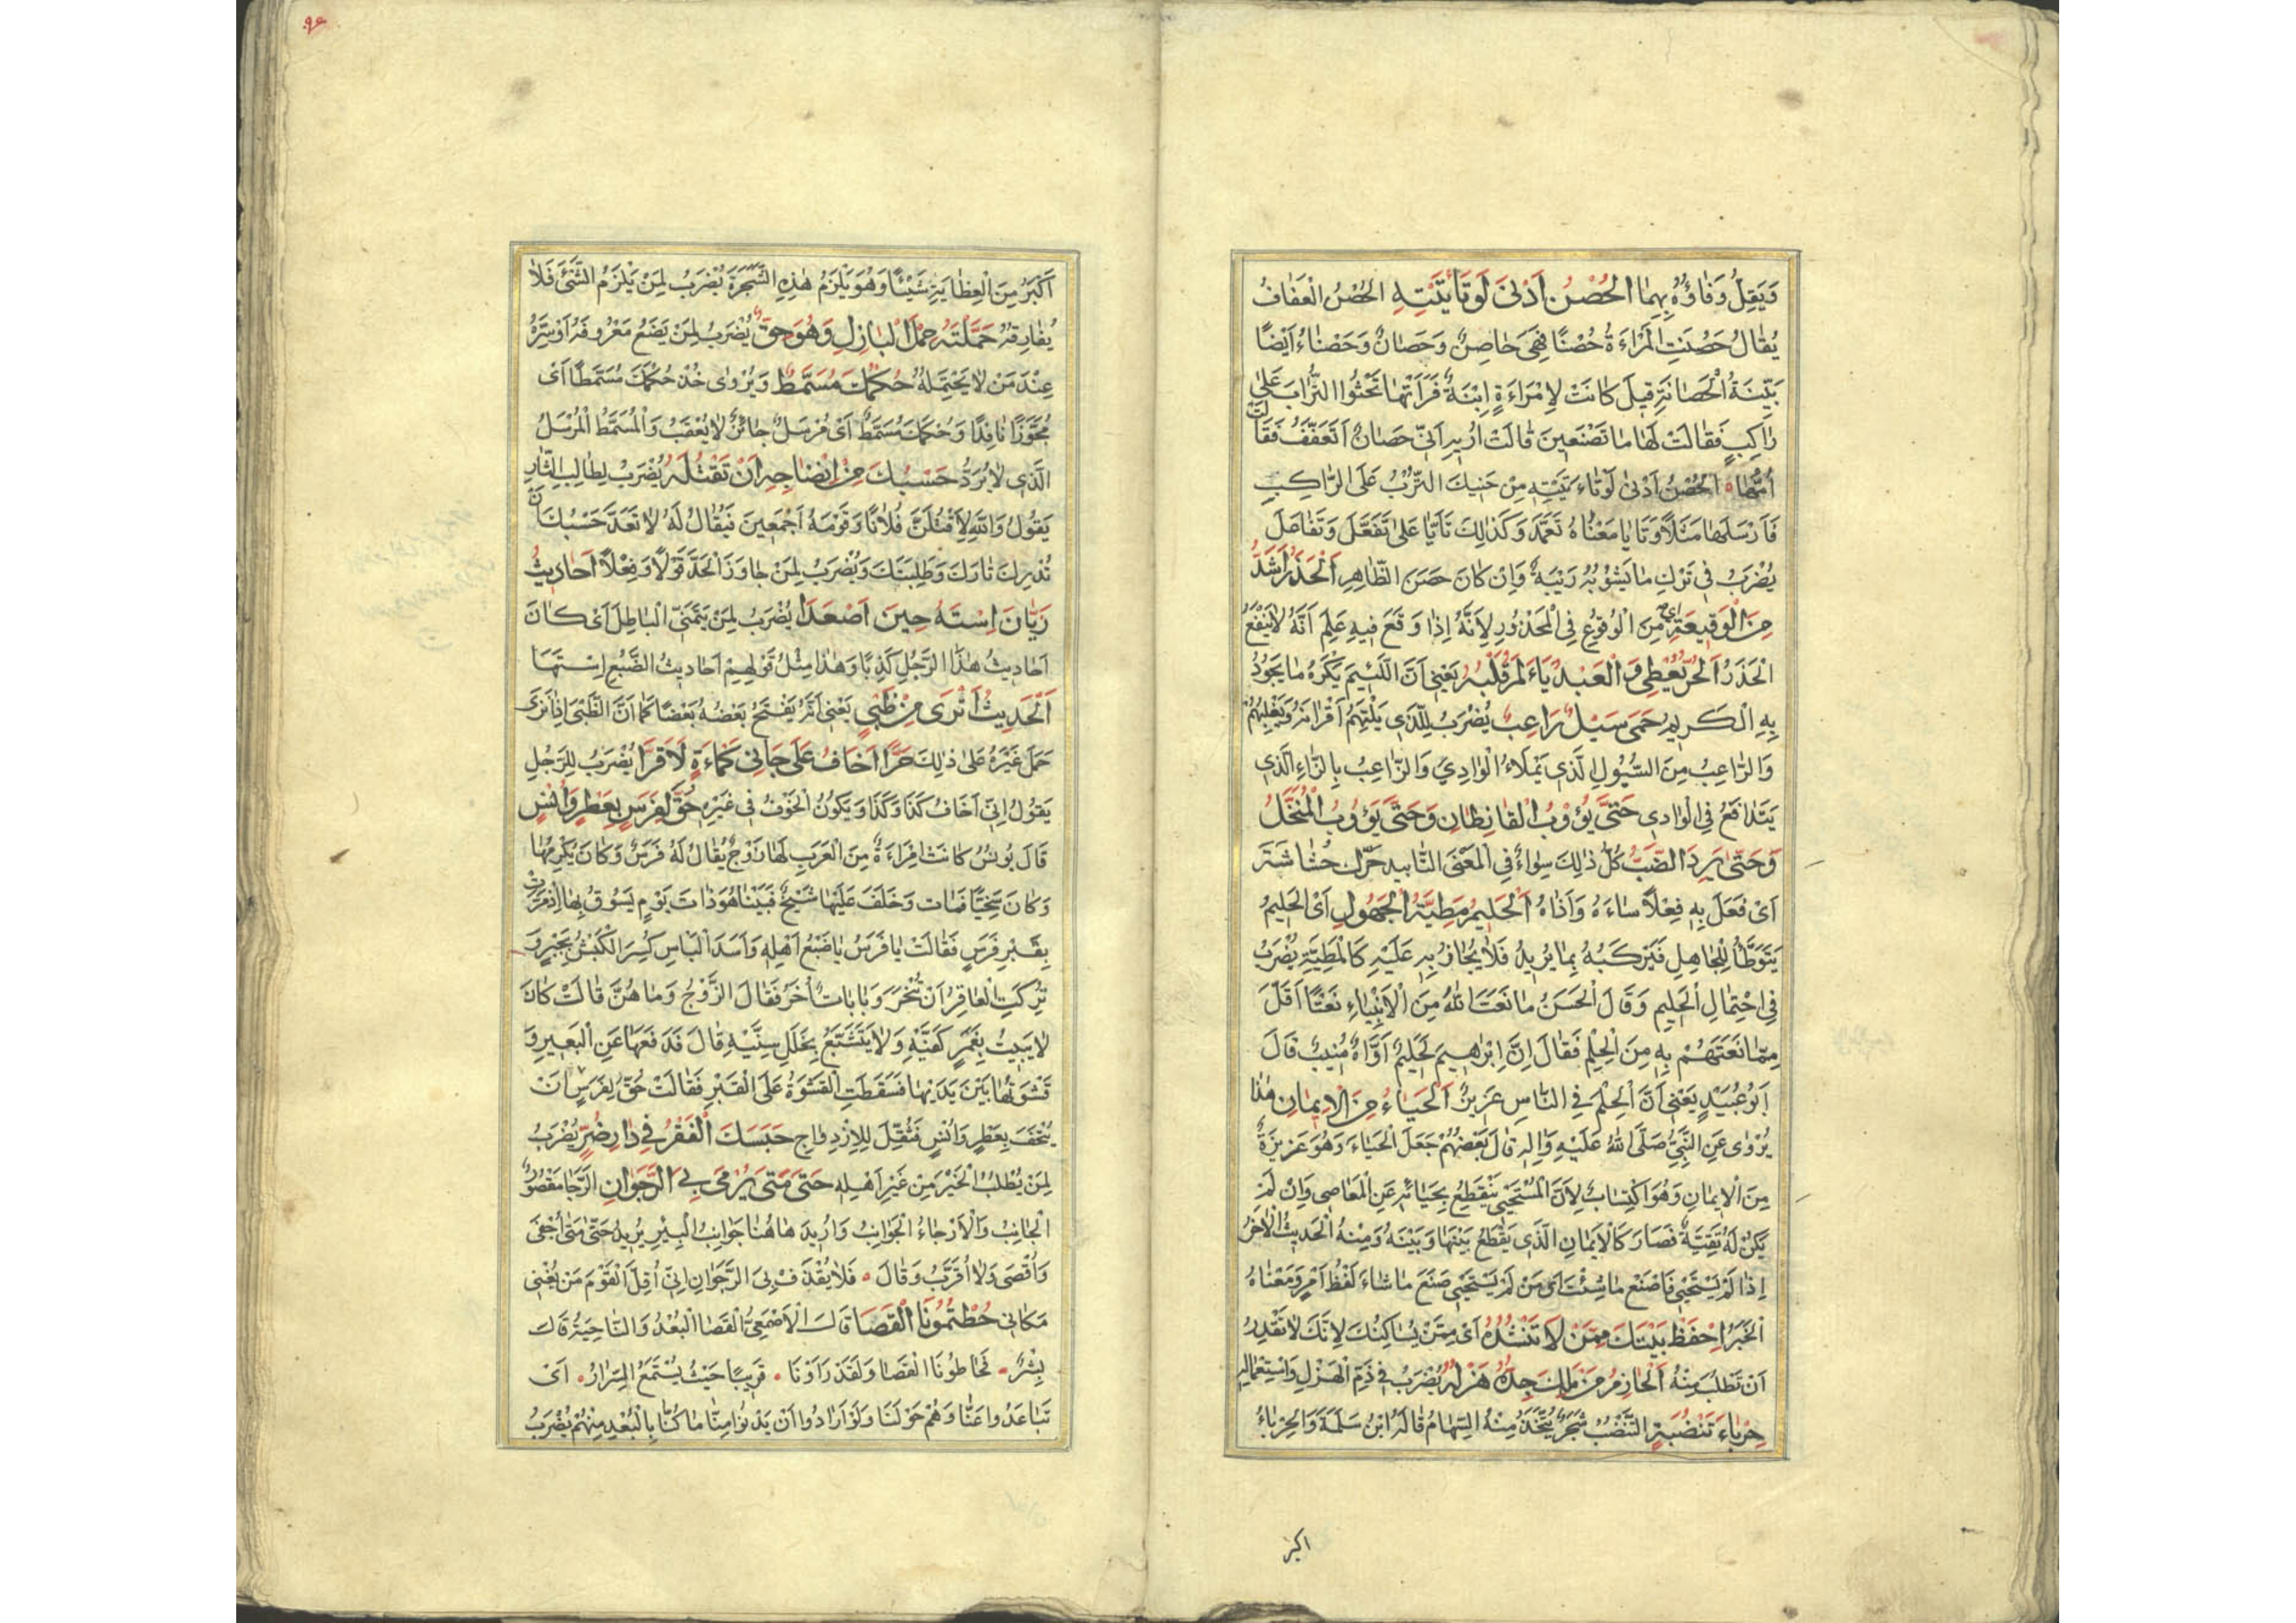 وَيَقِلُّ وَفَاؤُهُ بِهِمَا الْحُصْنُ اَدْنیٰ لَوْ تَأَيَّيْتِهِ الْحُصْنُ الْعَفَافُ
يُقَالُ حَصُنَتِ الْمَرْاَءةُ حُصْنًا فَهِيَ حَاصِنٌ وَحَصَانٌ وَحَصْنَاءُ اَيْضًا
بَيِّنَةُ الْحَصَانَةِ قِيلَ كَانَتْ لِاِمْرَاَءةٍ اِبْنَةٌ فَرَأَتْهَا تَحْثُوا التُّرَابَ عَلیٰ
رَاكِبٍ فَقَالَتْ لَهَا مَا تَصْنَعِينَ قَالَتْ اُرِيدُ اَنِّي حَصَانٌ اَتَعَفَّفُ فَقَالَتْ
اُمُّهَا الْحُصْنُ اَدْنیٰ لَوْ تَاءَيَّيْتِهِ مِنْ حَثْيِكَ التُّرْبَ عَلَی الرَّاكِبِ
فَاَرْسَلَهَا مَثَلًا وَتَايَا مَعْنَاهُ تَعَمَّدَ وَكَذٰلِكَ تَاَيَّا عَلیٰ تَفَعَّلَ وَتَفَاعَلَ
يُضْرَبُ فِي تَرْكِ مَا يَشُوْبُهُ رَيْبَةٌ وَاِنْ كَانَ حَسَنَ الظَّاهِرِ اَلْحَذَرُ اَشَدُّ
مِنَ الْوَقِيعَةِ اي مِنَ الْوُقُوعِ فِي الْمَحْذُورِ لِاَنَّهُ اِذَا وَقَعَ فِيهِ عَلِمَ اَنَّهُ لَا يَنْفَعُ
الْحَذَرُ اَلْحُرُّ يُعْطِي وَالْعَبْدُ يَاءَلَمُ قَلْبُهُ يَعْنِي اَنَّ اللَّئِيمَ يَكْرَهُ مَا يَجُودُ
بِهِ الْكَرِيمُ حَمَی سَيْلٌ رَاعِبٌ يُضْرَبُ لِلَّذِي يَلْتَهِمُ اَقْرَانَهُ وَيَغْلِبُهُمْ
وَالرَّاعِبُ مِنَ السُّيُولِ الَّذِي يَمْلَاءُ الْوَادِي وَالزَّاعِبُ بِالزَّاءِ الَّذِي
يَتَدَافَعُ فِي الْوَادِي حَتّیٰ يَؤُوْبَ الْقَارِظَانِ وَحَتّیٰ يَؤُوبَ الْمُنَخَّلُ
وَحَتّیٰ يَرِدَ الضَّبُّ كُلُّ ذٰلِكَ سِوَاءٌ فِي الْمَعْنَی التَّابِيد حَرِّك حُشَاشَتَهُ
اَيْ فَعَلَ بِهِ فِعْلًا سَاءَهُ وَآذَاهُ اَلْحَلِيمُ مَطِيَّةُ الْجَهُولِ اَيْ الْحَلِيمُ
يَتَوَطَّأُ لِلْجَاهِلِ فَيَرْكَبُهُ بِمَا يُرِيدُ فَلَا يُجَازِيهِ عَلَيْهِ كَالْمَطِيَّةِ يُضْرَبُ
فِي احْتِمَالِ الْحَلِيمِ وَقَالَ الْحَسَنُ مَا نَعَتَ اللّٰهُ مِنَ الْاَنْبِيَاءِ نَعْتًا اَقَلَّ
مِمَّا نَعَتَهُمْ بِهِ مِنَ الْحِلْمِ فَقَالَ اِنَّ اِبْرٰهِيمَ لَحَلِيمٌ اَوَّاهٌ مُنِيبٌ قَالَ
اَبُو عُبَيْدٍ يَعْنِي اَنَّ الْحِلْمَ فِي النَّاسِ عَزِيزٌ اَلْحَيَاءُ مِنَ الْاِيمَانِ هٰذَا
يُرْوٰی عَنِ النَّبِيِّ صَلَّی اللّٰهُ عَلَيْهِ وَاٰلِهِ قَالَ بَعْضُهُمْ جَعَلَ الْحَيَاءَ وَهُوَ غَرِيزَةٌ
مِنَ الْاِيمَانِ وَهُوَ اكْتِسَابٌ لِاَنَّ الْمُسْتَحْيِي يَنْقَطِعُ بِحَيَائِهِ عَنِ الْمَعَاصِي وَاِنْ لَمْ
يَكُنْ لَهُ تَقِيَّةٌ فَصَارَ كَالْاِيمَانِ الَّذِي يَقْطَعُ بَيْنَهَا وَبَيْنَهُ وَمِنْهُ الْحَدِيثُ الْاٰخَرُ
اِذَا لَمْ تَسْتَحْيِ فَاصْنَعْ مَا شِئْتَ اَيْ مَنْ لَمْ يَسْتَحْيِ صَنَعَ مَا شَاءَ لَفْظُ اَمْرٍ وَمَعْنَاهُ
الْخَبَرُ اِحْفَظْ بَيْتَكَ مِمَّنْ لَا تَنْشُدُهُ اَيْ مِمَّنْ يُسَاكِنُكَ لِاَنَّكَ لَا تَقْدِرُ
اَنْ تَطْلُبَ مِنْهُ اَلْحَازِمُ مَنْ مَلَكَ جِدُّهُ هَزْلَهُ يُضْرَبُ فِي ذَمِّ الْهَزْلِ وَاسْتِعْمَالِهِ
حِرْبَاءُ تَنْضُبَةٍ التَّنْضُبُ شَجَرٌ يُتَّخَذُ مِنْهُ السِّهَامُ قَالَهُ ابْنُ سَلَمَةَ وَالْحِرْبَاءُ
اكبر
٩٤
اَكْبَرُ مِنَ الْعِظَايَةِ شَيْئًا وَهُوَ يَلْزَمُ هٰذِهِ الشَّجَرَةَ يُضْرَبُ لِمَنْ يَلْزَمُ الشَّيْءَ فَلَا
يُفَارِقُهُ حَمَّلْتَهُ حِمْلَ الْبَازِلِ وَهُوَ حِقٌّ يُضْرَبُ لِمَنْ يَضَعُ مَعْرُوفَهُ اَوْ سِرَّهُ
عِنْدَ مَنْ لَا يَحْتَمِلُهُ حُكْمُكَ مُسَمَّطٌ وَيُرْوٰی خُذْ حُكْمَكَ مُسَمَّطًا اَيْ
مُجَوَّزًا نَافِذًا وَحُكْمُكَ مُسَمَّطٌ اَيْ مُرْسَلٌ جَائِزٌ لَا يُعْقَبُ وَالْمُسَمَّطُ الْمُرْسَلُ
الَّذِي لَا يُرَدُّ حَسْبُكَ مِنْ اِنْضَاجِهِ اَنْ تَقْتُلَهُ يُضْرَبُ لِطَالِبِ الثَّارِ
يَقُولُ وَاللّٰهِ لَاَقْتُلَنَّ فُلَانًا وَقَوْمَهُ اَجْمَعِينَ فَيُقَالُ لَهُ لَا تَعَدَّ حَسْبُكَ اَنْ
تُدْرِكَ ثَارَكَ وَطَلِبَتَكَ وَيُضْرَبُ لِمَنْ جَاوَزَ الْحَدَّ قَوْلًا وَفِعْلًا اَحَادِيثُ
رَيَّانَ اِسْتَهُ حِينَ اَصْعَدَا يُضْرَبُ لِمَنْ يَتَمَنَّی الْبَاطِلَ اَيْ كَانَ
اَحَادِيثُ هٰذَا الرَّجُلِ كَذِبًا وَهٰذَا مِثْلُ قَوْلِهِمْ اَحَادِيثُ الضَّبُعِ اِسْتَهَا
اَلْحَدِيثُ اَنْزَی مِنْ ظَبْيٍ يَعْنِي اَنَّهُ يَفْتَحُ بَعْضُهُ بَعْضًا كَمَا اَنَّ الظَّبْيَ اِذَا نَزَی
حَمَلَ غَيْرَهُ عَلیٰ ذٰلِكَ حَرًّا اَخَافُ عَلیٰ جَانِي كَمْاَءةٍ لَا قَرًّا يُضْرَبُ لِلرَّجُلِ
يَقُولُ اِنِّي اَخَافُ كَذَا وَكَذَا وَيَكُونُ الْخَوْفُ فِي غَيْرِهِ حُقَّ لِفَرَسٍ بِعَطْرٍ وَاُنْسٍ
قَالَ يُونُسُ كَانَتْ اِمْرَاَءةٌ مِنَ الْعَرَبِ لَهَا زَوْجٌ يُقَالُ لَهُ فَرَسٌ وَكَانَ يُكْرِمُهَا
وَكَانَ سَخِيًّا فَمَاتَ وَخَلَفَ عَلَيْهَا شَيْخٌ فَبَيْنَا هُوَ ذَاتَ يَوْمٍ يَسُوقُ بِهَا اِذْ مَرَّتْ
بِقَبْرِ فَرَسٍ فَقَالَتْ يَا فَرَسُ يَا ضَبُعَ اَهْلِهِ وَاَسَدَ الْبَاسِ كُسِرَ الْكَبْشُ بِجَبْرٍ وَ
تُرِكَتِ الْعَاقِرُ اَنْ تُنْحَرَ وَبَابَاتٌ اُخَرُ فَقَالَ الزَّوْجُ وَمَا هُنَّ قَالَتْ كَانَ
لَا يَبِيتُ بِغَمَرٍ كَفَيْهِ وَلَا يَتَشَبَّعُ بِخَلَلِ سِنَّيْهِ قَالَ فَدَفَعَهَا عَنِ الْبَعِيرِ وَ
قَشْوَتُهَا بَيْنَ يَدَيْهَا فَسَقَطَتِ الْقَشْوَةُ عَلَی الْقَبْرِ فَقَالَتْ حُقَّ لِفَرَسٍ اَنْ
يُتْحَفَ بِعَطْرٍ وَاُنْسٍ فَثُقِّلَ لِلِازْدِوَاجِ حَبَسَكَ الْفَقْرُ فِي دَارِ ضُرٍّ يُضْرَبُ
لِمَنْ يَطْلُبُ الْخَيْرَ مِنْ غَيْرِ اَهْلِهِ حَتّیٰ مَتیٰ يُرْمَی بِيَ الرَّجَوَانِ الرَّجَا مَقْصُورٌ
الْجَانِبُ وَالْاَرْجَاءُ الْجَوَانِبُ وَاُرِيدَ هَاهُنَا جَوَانِبُ الْبِيْرِ يُرِيدُ حَتّیٰ مَتیٰ اُجْفَی
وَاُقْصَی وَلَا اُقَرَّبُ وَقَالَ فَلَا يُقْذَفُ بِيَ الرَّجَوَانِ اِنِّي اَقِلُّ الْقَوْمَ مَنْ يُغْنِي
مَكَانِي حُطْتُمُونَا الْقَصَا قَالَ الْاَصْمَعِيُّ الْقَصَا الْبُعْدُ وَالنَّاحِيَةُ قَالَ
بِشْرٌ فَحَاطُونَا الْقَصَا وَلَقَدْ رَاَوْنَا قَرِيبًا حَيْثُ يُسْتَمَعُ السِّرَارُ اَيْ
تَبَاعَدُوا عَنَّا وَهُمْ حَوْلَنَا وَلَوْ اَرَادُوا اَنْ يَدْنُوا مِنَّا مَا كُنَّا بِالْبُعْدِ مِنْهُمْ يُضْرَبُ